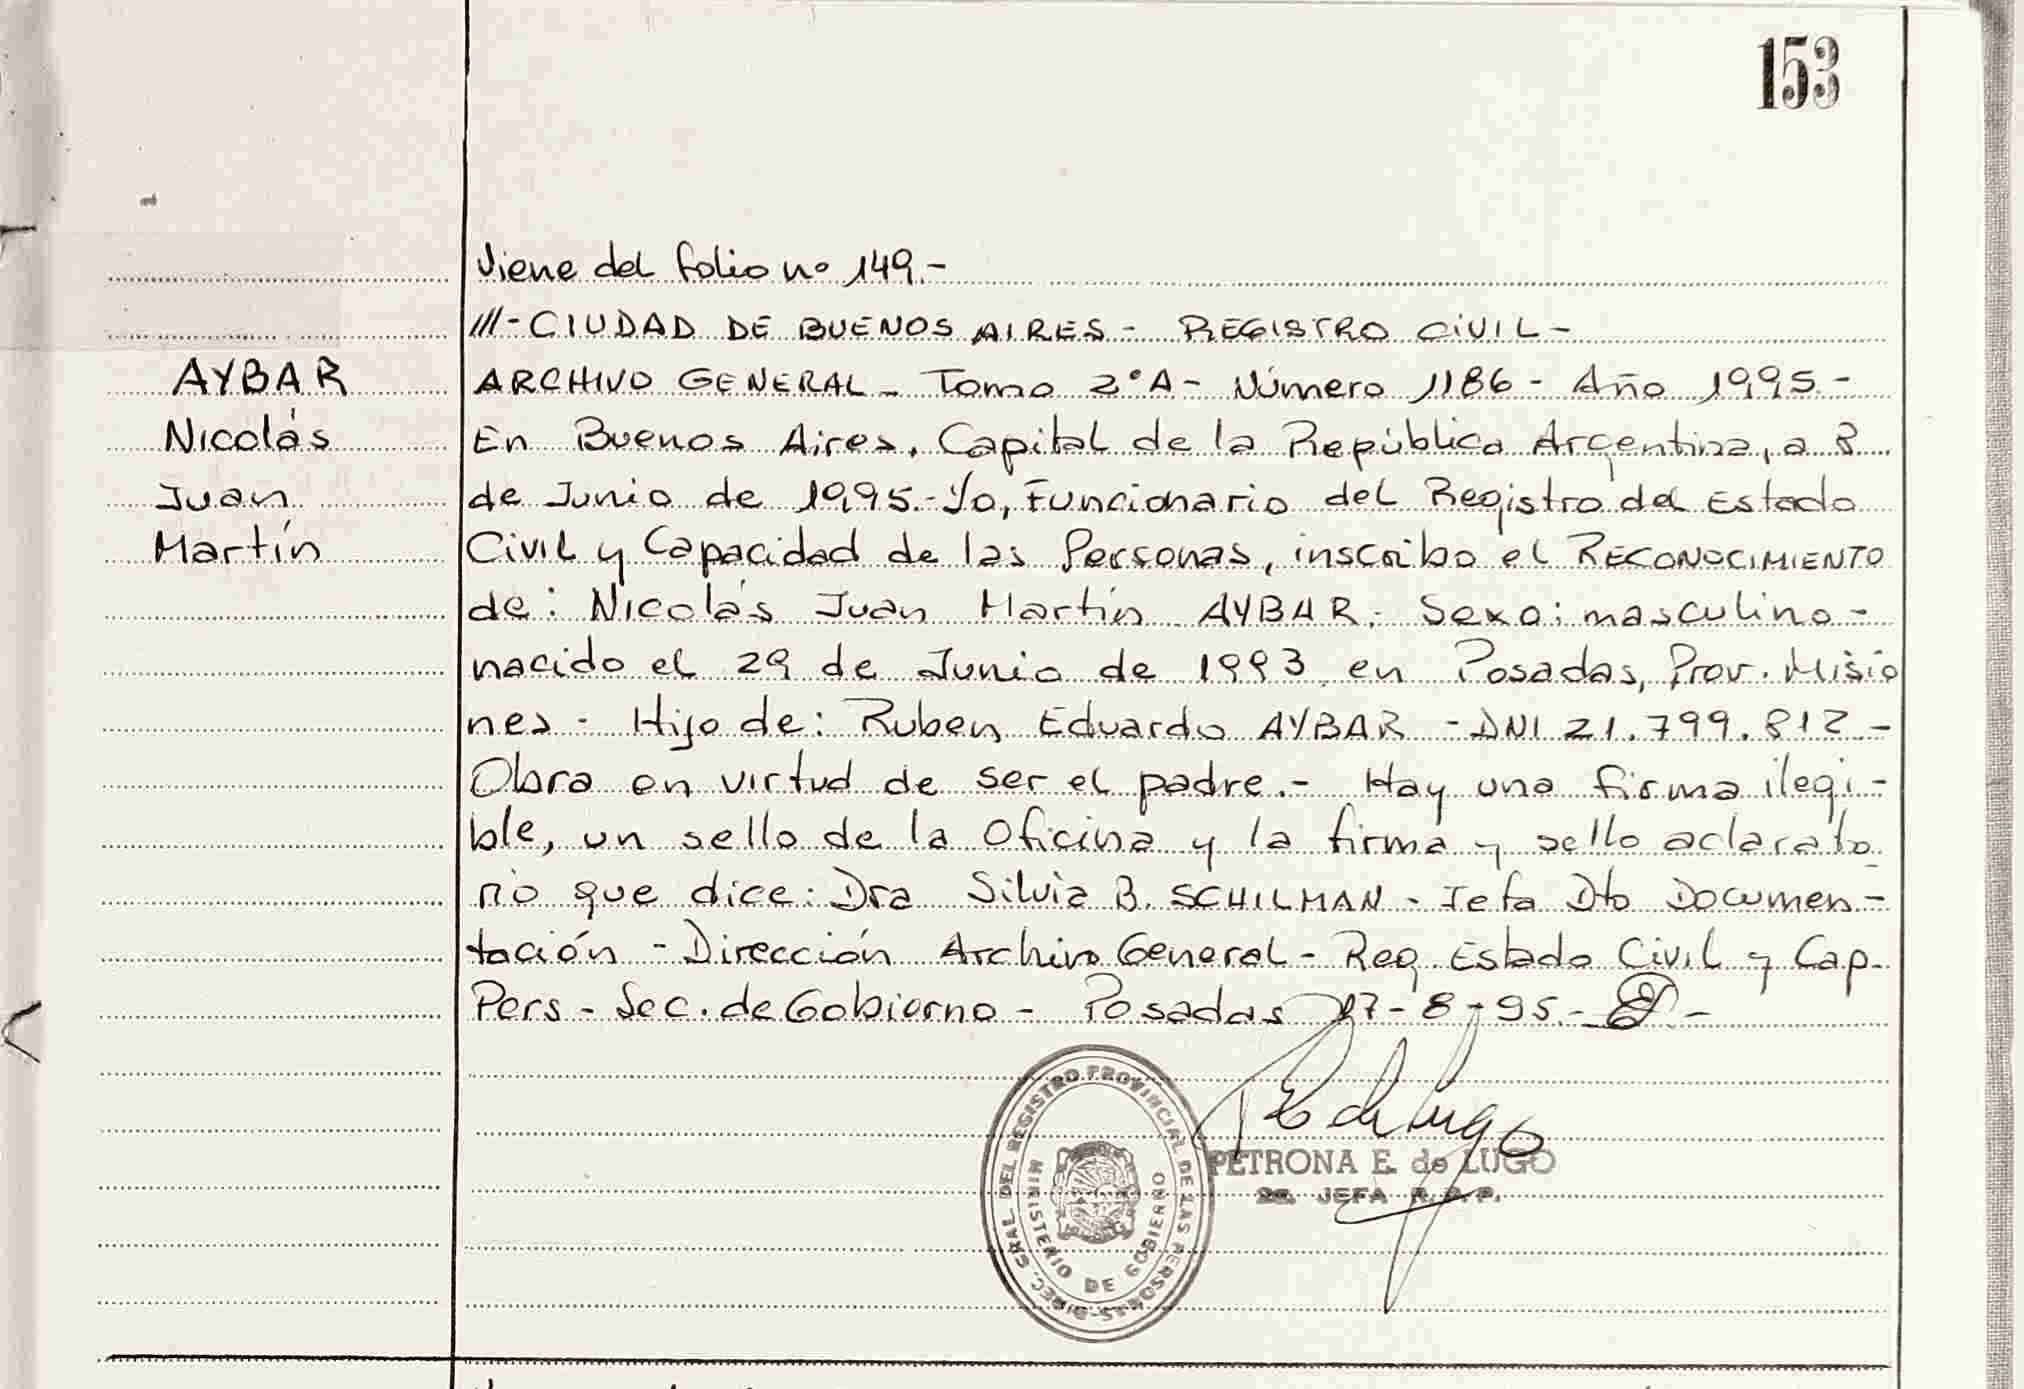 153
Viene del folio nº 149.-
///- CIUDAD DE BUENOS AIRES - REGISTRO CIVIL -
AYBAR
Nicolás
Juan
Martín
ARCHIVO GENERAL - Tomo 2º A - Número 1186 - Año 1995.-
En Buenos Aires, Capital de la República Argentina, a 8
de Junio de 1995.- Yo, Funcionario del Registro del Estado
Civil y Capacidad de las Personas, inscribo el RECONOCIMIENTO
de: Nicolás Juan Martín AYBAR. Sexo: masculino -
nacido el 29 de Junio de 1993 en Posadas, Prov. Misio
nes - Hijo de: Ruben Eduardo AYBAR - DNI 21.799.812 -
Obra en virtud de ser el padre.- Hay una firma ilegi-
ble, un sello de la Oficina y la firma y sello aclarato
rio que dice: Dra Silvia B. SCHILMAN - Jefa Dto Documen-
tación - Dirección Archivo General - Reg. Estado Civil y Cap-
Pers - Sec. de Gobierno - Posadas 17-8-95.- -
DIREC. GRAL DEL REGISTRO PROVINCIAL DE LAS PERSONAS
MINISTERIO DE GOBIERNO
PE de Lugo
PETRONA E. de LUGO
2a. JEFA R.P.P.